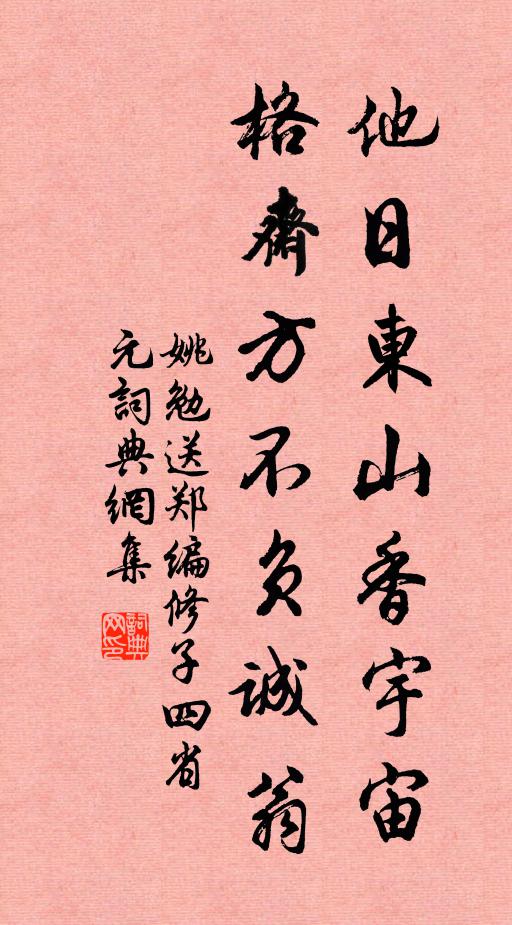 他日東山香宇宙
格齋方不负誠翁
姚勉送郑编修子四省
元詞典網集
詞典网印